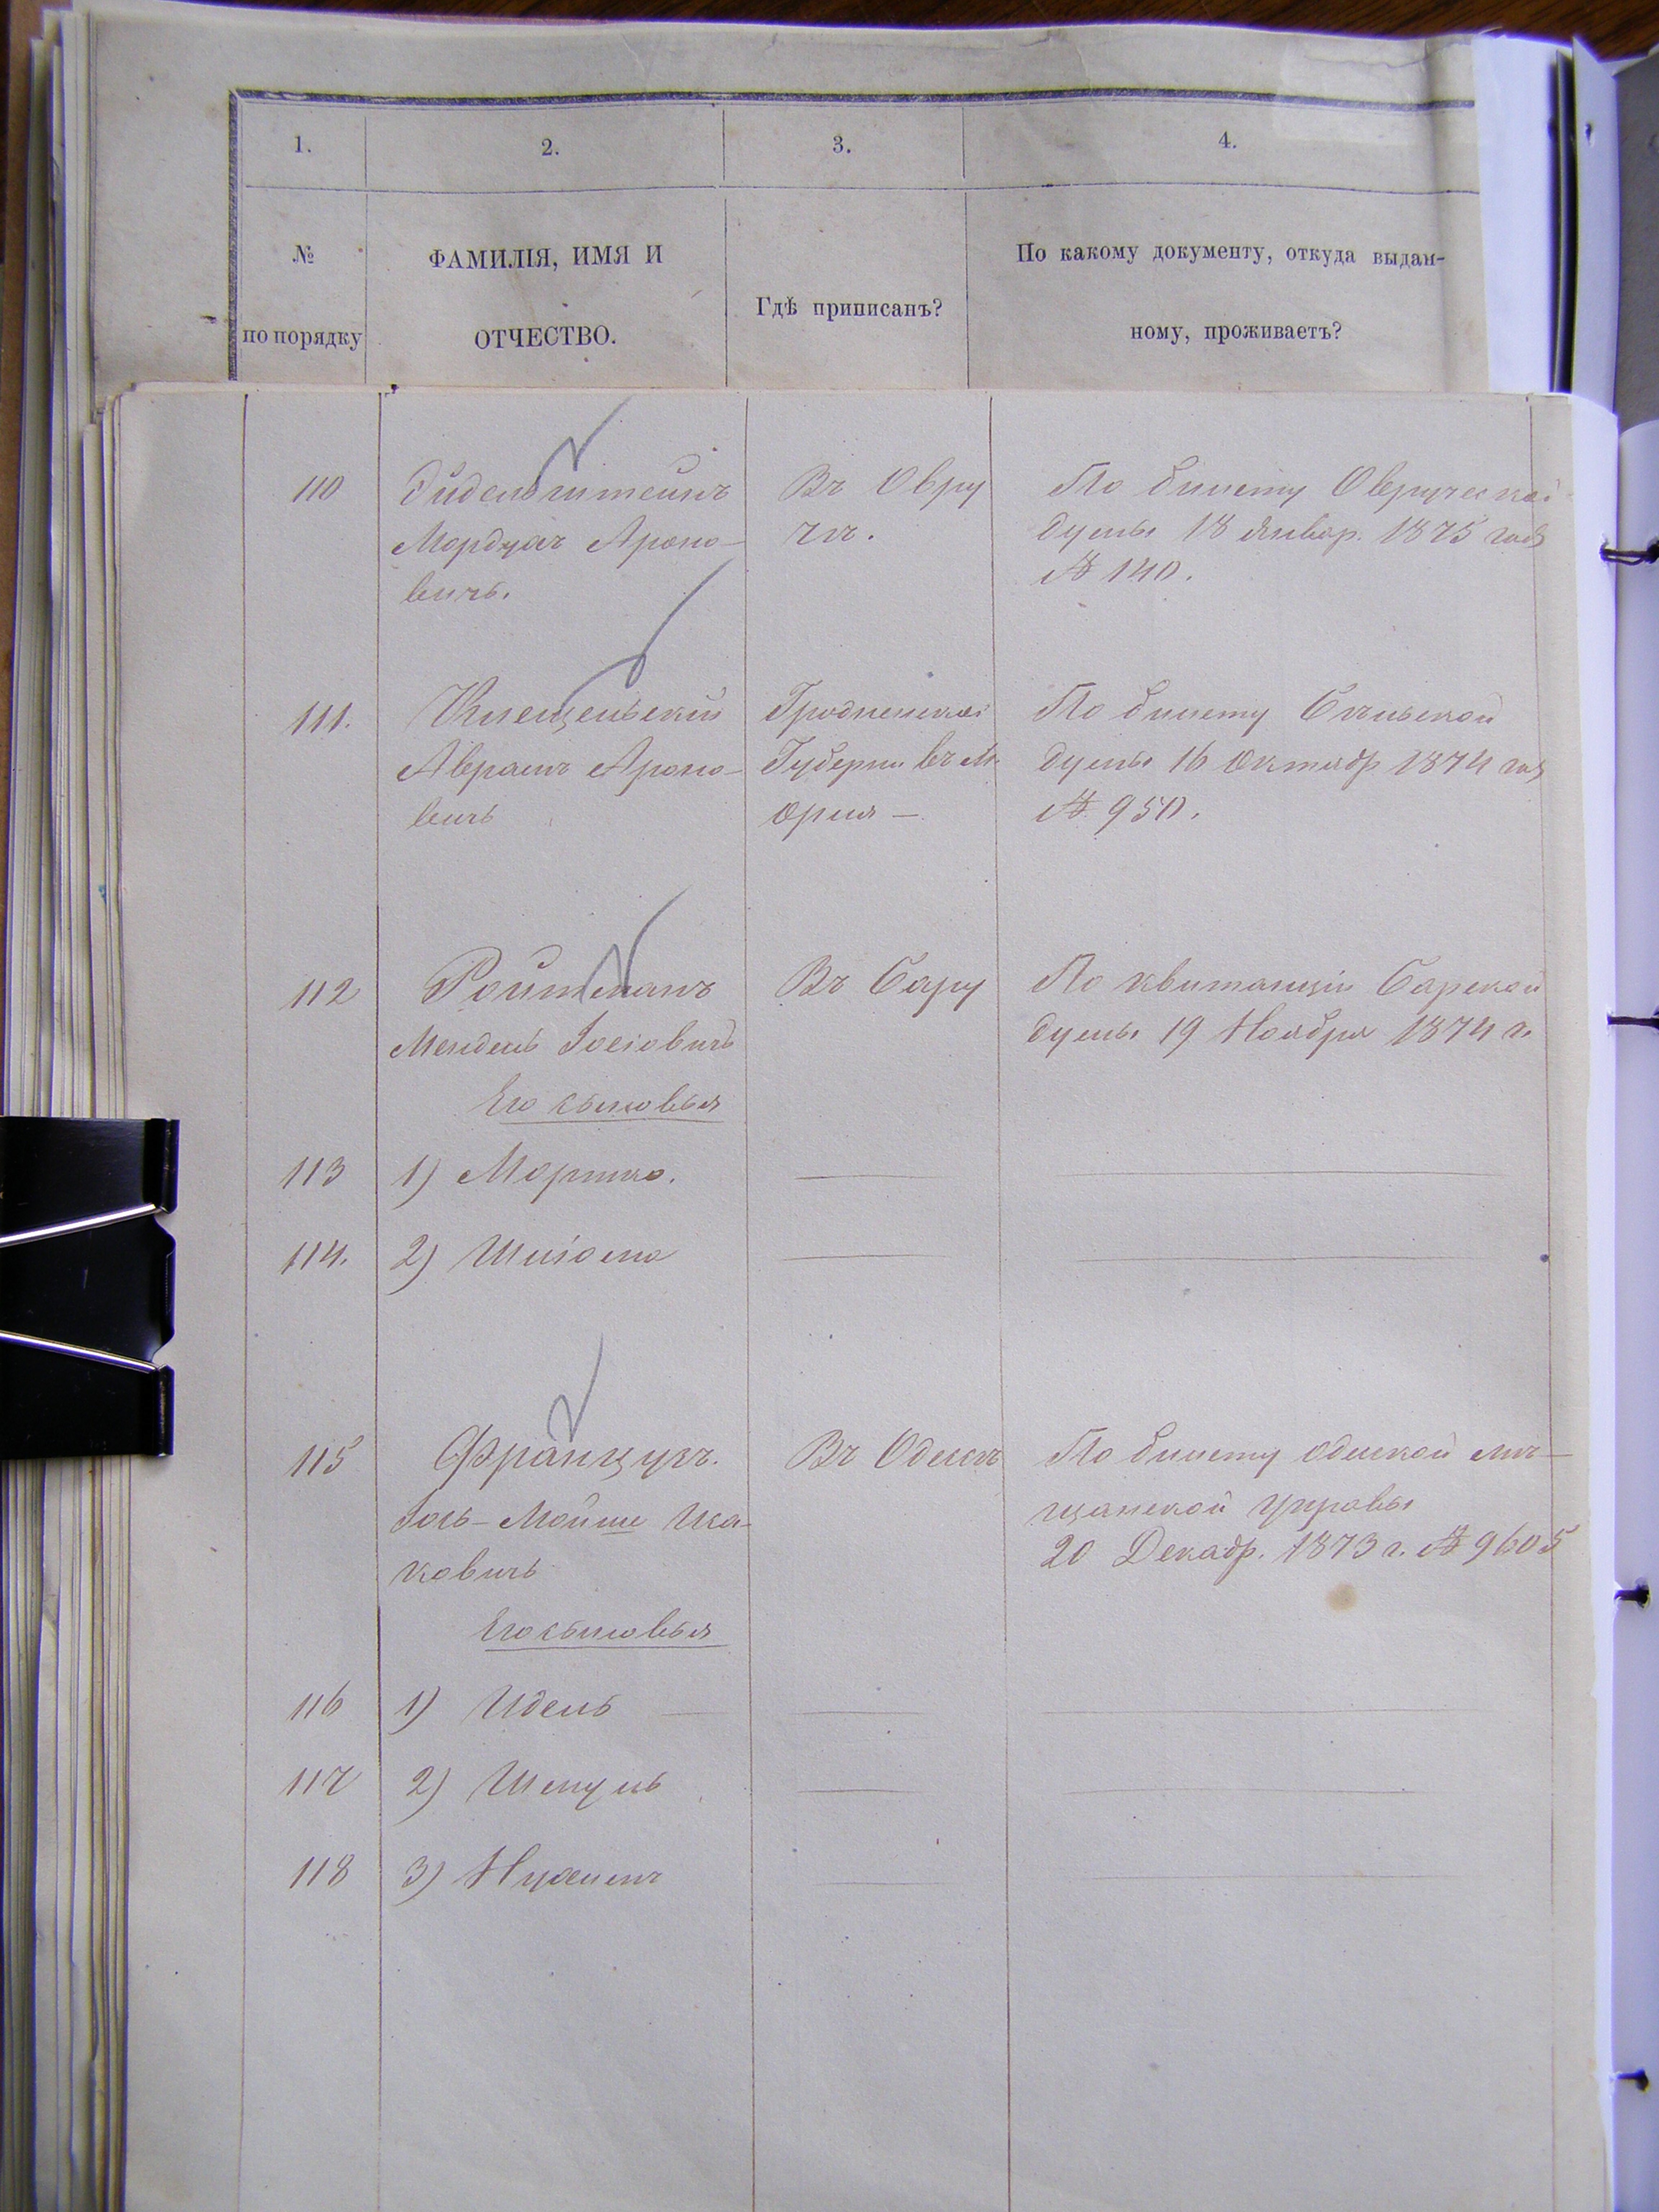 1. 2. 3. 4.
№ по порядку
ФАМИЛІЯ, ИМЯ И
ОТЧЕСТВО.
Гдѣ приписанъ?
По какому документу, откуда выдан-
ному, проживаетъ?
110 Эйдельштейнъ Въ Овру По билету Овручской
Мордхай Ароно- чѣ. думы 18 Январ. 1875 года
вичъ. № 140.
111. Клещельскій Гродненской По билету
Аврамъ Ароно- Губерніи въ м. думы 16 Октябр 1874 год
вичъ № 950.
112 Ройтманъ Въ Бару По квитанціи Барской
Мендель Іосіовичъ думы 19 Ноября 1874 г.
Его сыновья
113 1) Мортко.
114. 2) Шліома
115 Французъ. Въ Одессѣ По билету Одесской мѣ-
Іось-Мойше Иса- щанской управы
ковичъ 20 Декабр. 1873 г. № 9605
Его сыновья
116 1) Идель
117 2) Шмуль
118 3) Нухимъ